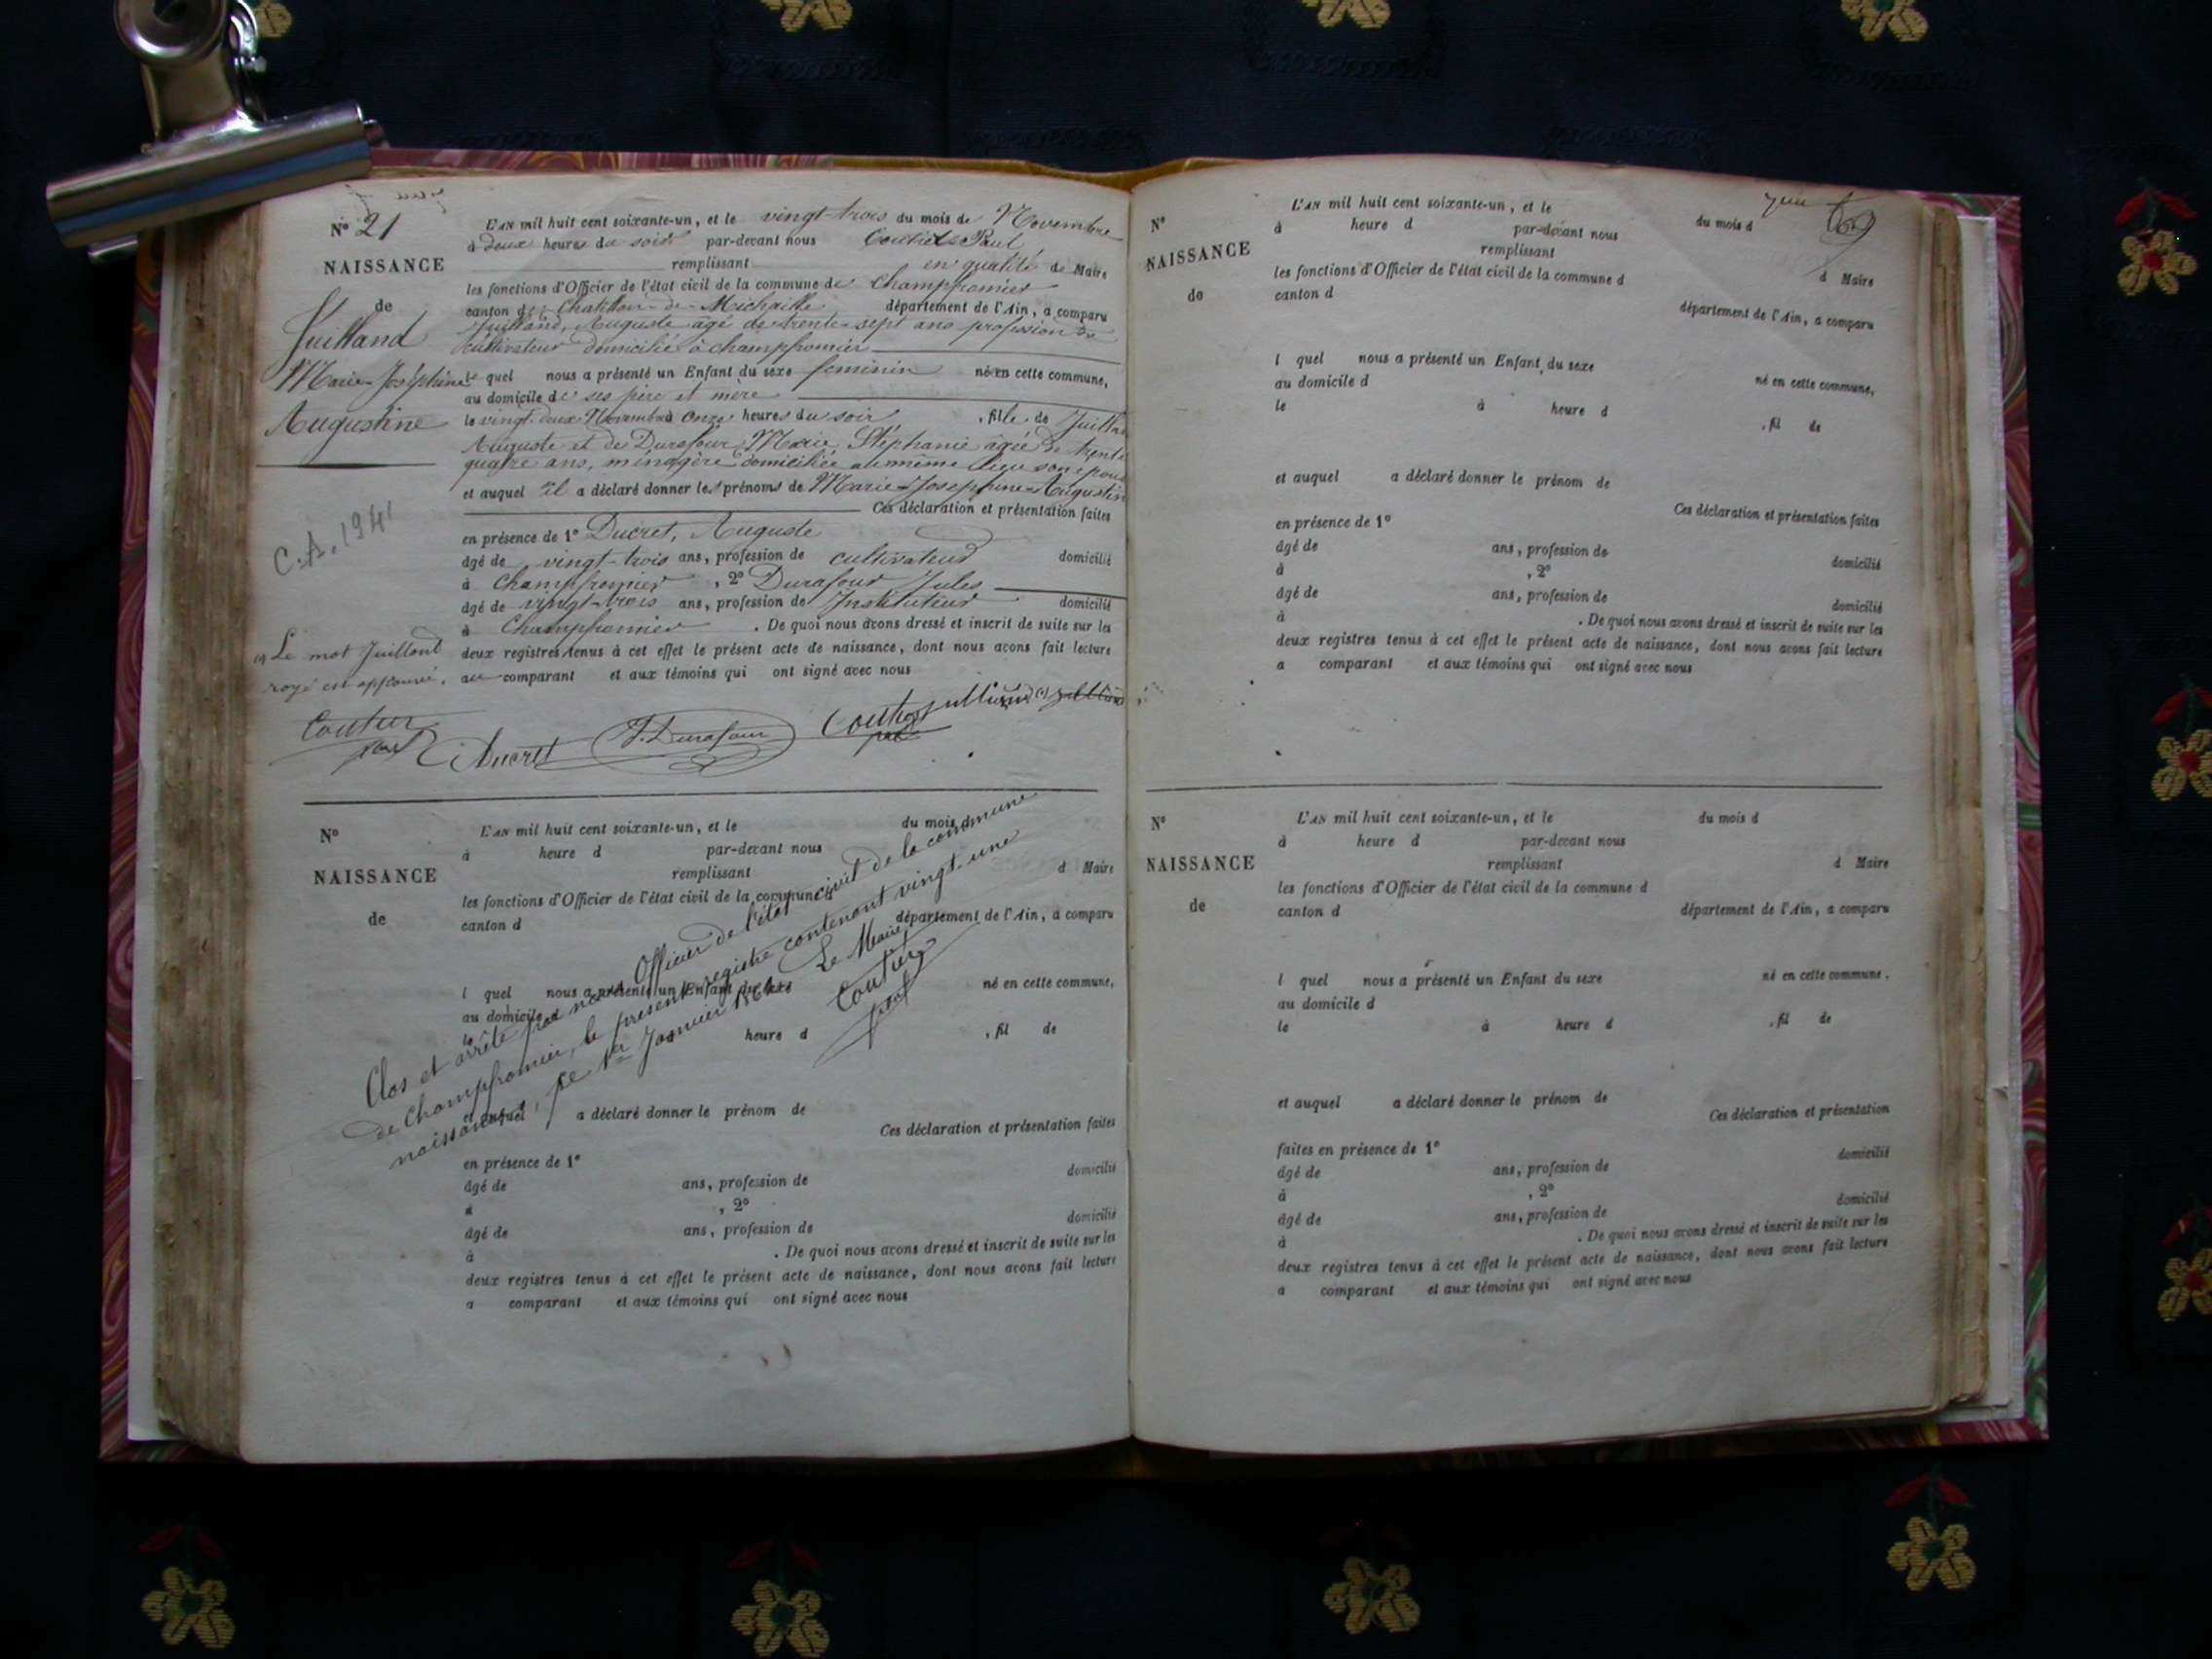 N° 21
NAISSANCE
de
Juilland
Marie-Joséphine
Augustine
C.A. 1941
(1) Le mot Juilland
rayé est approuvé.
Coutier
Paul
L'AN mil huit cent soixante-un, et le vingt-trois du mois de Novembre
à deux heures du soir par-devant nous Coutier Paul
remplissant en qualité de Maire
les fonctions d'Officier de l'état civil de la commune de Champfromier
canton de Chatillon-de-Michaille département de l'Ain, a comparu
Juilland, Auguste âgé de trente-sept ans profession de
cultivateur domicilié à champfromier
le quel nous a présenté un Enfant du sexe feminin né en cette commune,
au domicile de ses père et mère
le vingt-deux Novembre à onze heures du soir, fille de Juilland
Auguste et de Durafour Marie Stéphanie âgée de trente
quatre ans, ménagère domiciliée au même lieu son epouse
et auquel il a déclaré donner les prénoms de Marie-Josephine-Augustine
Ces déclaration et présentation faites
en présence de 1° Ducret, Auguste
âgé de vingt-trois ans, profession de cultivateur domicilié
à Champfromier, 2° Durafour Jules
âgé de vingt-trois ans, profession de Instituteur domicilié
à Champfromier. De quoi nous avons dressé et inscrit de suite sur les
deux registres tenus à cet effet le présent acte de naissance, dont nous avons fait lecture
au comparant et aux témoins qui ont signé avec nous
Ducret J. Durafour Coutier Paul juilland (1) juilland
N°
NAISSANCE
de
L'AN mil huit cent soixante-un, et le du mois d
à heure d par-devant nous
remplissant d Maire
les fonctions d'Officier de l'état civil de la commune d
canton d département de l'Ain, a comparu
l quel nous a présenté un Enfant du sexe né en cette commune,
au domicile d
le à heure d , fil de
et auquel a déclaré donner le prénom de
Ces déclaration et présentation faites
en présence de 1°
âgé de ans, profession de domicilié
à , 2°
âgé de ans, profession de domicilié
à . De quoi nous avons dressé et inscrit de suite sur les
deux registres tenus à cet effet le présent acte de naissance, dont nous avons fait lecture
a comparant et aux témoins qui ont signé avec nous
Clos et arrêté par nous Officier de l'état civil de la commune
de Champfromier, le present registre contenant vingt-une
naissances, le 1er Janvier 1862
Le Maire,
Coutier
Paul
69
N°
NAISSANCE
de
L'AN mil huit cent soixante-un, et le du mois d
à heure d par-devant nous
remplissant d Maire
les fonctions d'Officier de l'état civil de la commune d
canton d département de l'Ain, a comparu
l quel nous a présenté un Enfant du sexe né en cette commune,
au domicile d
le à heure d , fil de
et auquel a déclaré donner le prénom de
Ces déclaration et présentation faites
en présence de 1°
âgé de ans, profession de domicilié
à , 2°
âgé de ans, profession de domicilié
à . De quoi nous avons dressé et inscrit de suite sur les
deux registres tenus à cet effet le présent acte de naissance, dont nous avons fait lecture
a comparant et aux témoins qui ont signé avec nous
N°
NAISSANCE
de
L'AN mil huit cent soixante-un, et le du mois d
à heure d par-devant nous
remplissant d Maire
les fonctions d'Officier de l'état civil de la commune d
canton d département de l'Ain, a comparu
l quel nous a présenté un Enfant du sexe né en cette commune.
au domicile d
le à heure d , fil de
et auquel a déclaré donner le prénom de
Ces déclaration et présentation
faites en présence de 1°
âgé de ans, profession de domicilié
à , 2°
âgé de ans, profession de domicilié
à . De quoi nous avons dressé et inscrit de suite sur les
deux registres tenus à cet effet le présent acte de naissance, dont nous avons fait lecture
a comparant et aux témoins qui ont signé avec nous